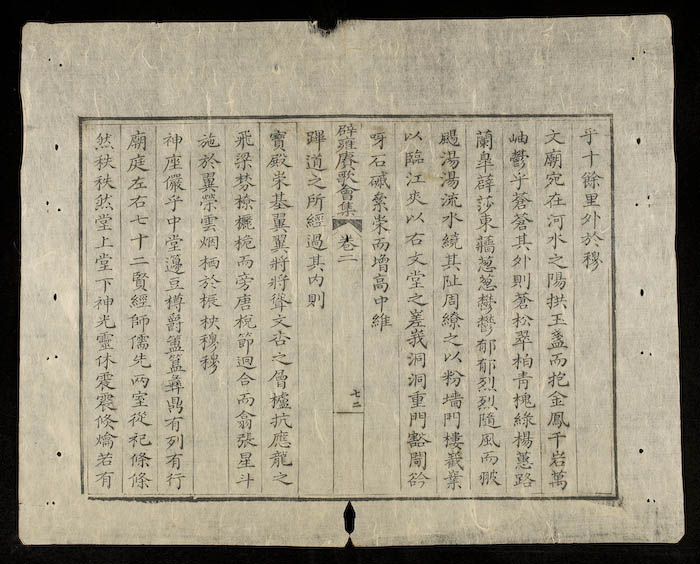 乎十餘里外於穆
文廟宛在河水之陽拱玉盞而抱金鳳千岩萬
岫鬱乎蒼蒼其外則蒼松翠柏青槐綠楊蕙路
蘭皐薜莎東牆葱葱欝欝郁郁烈烈隨風而披
颺湯湯流水繞其阯周繚之以粉墻門樓嶻嶪
以臨江夾以右文堂之嵳峩洞洞重門豁閜谽
呀石磩絫崇而增高中維
辟雍賡歌會集 卷二 七二
蹕道之所經過其內則
寶殿崇基翼翼將將聳文杏之層櫨抗應龍之
飛梁棼橑欐桅而旁唐棁節迴合而翕張星斗
施於翼榮雲烟栖於棖柍穆穆
神座儼乎中堂籩豆樽爵簠簋彝鼎有列有行
廟庭左右七十二賢經師儒先兩室從祀條條
然秩秩然堂上堂下神光靈休震震倏爚若有